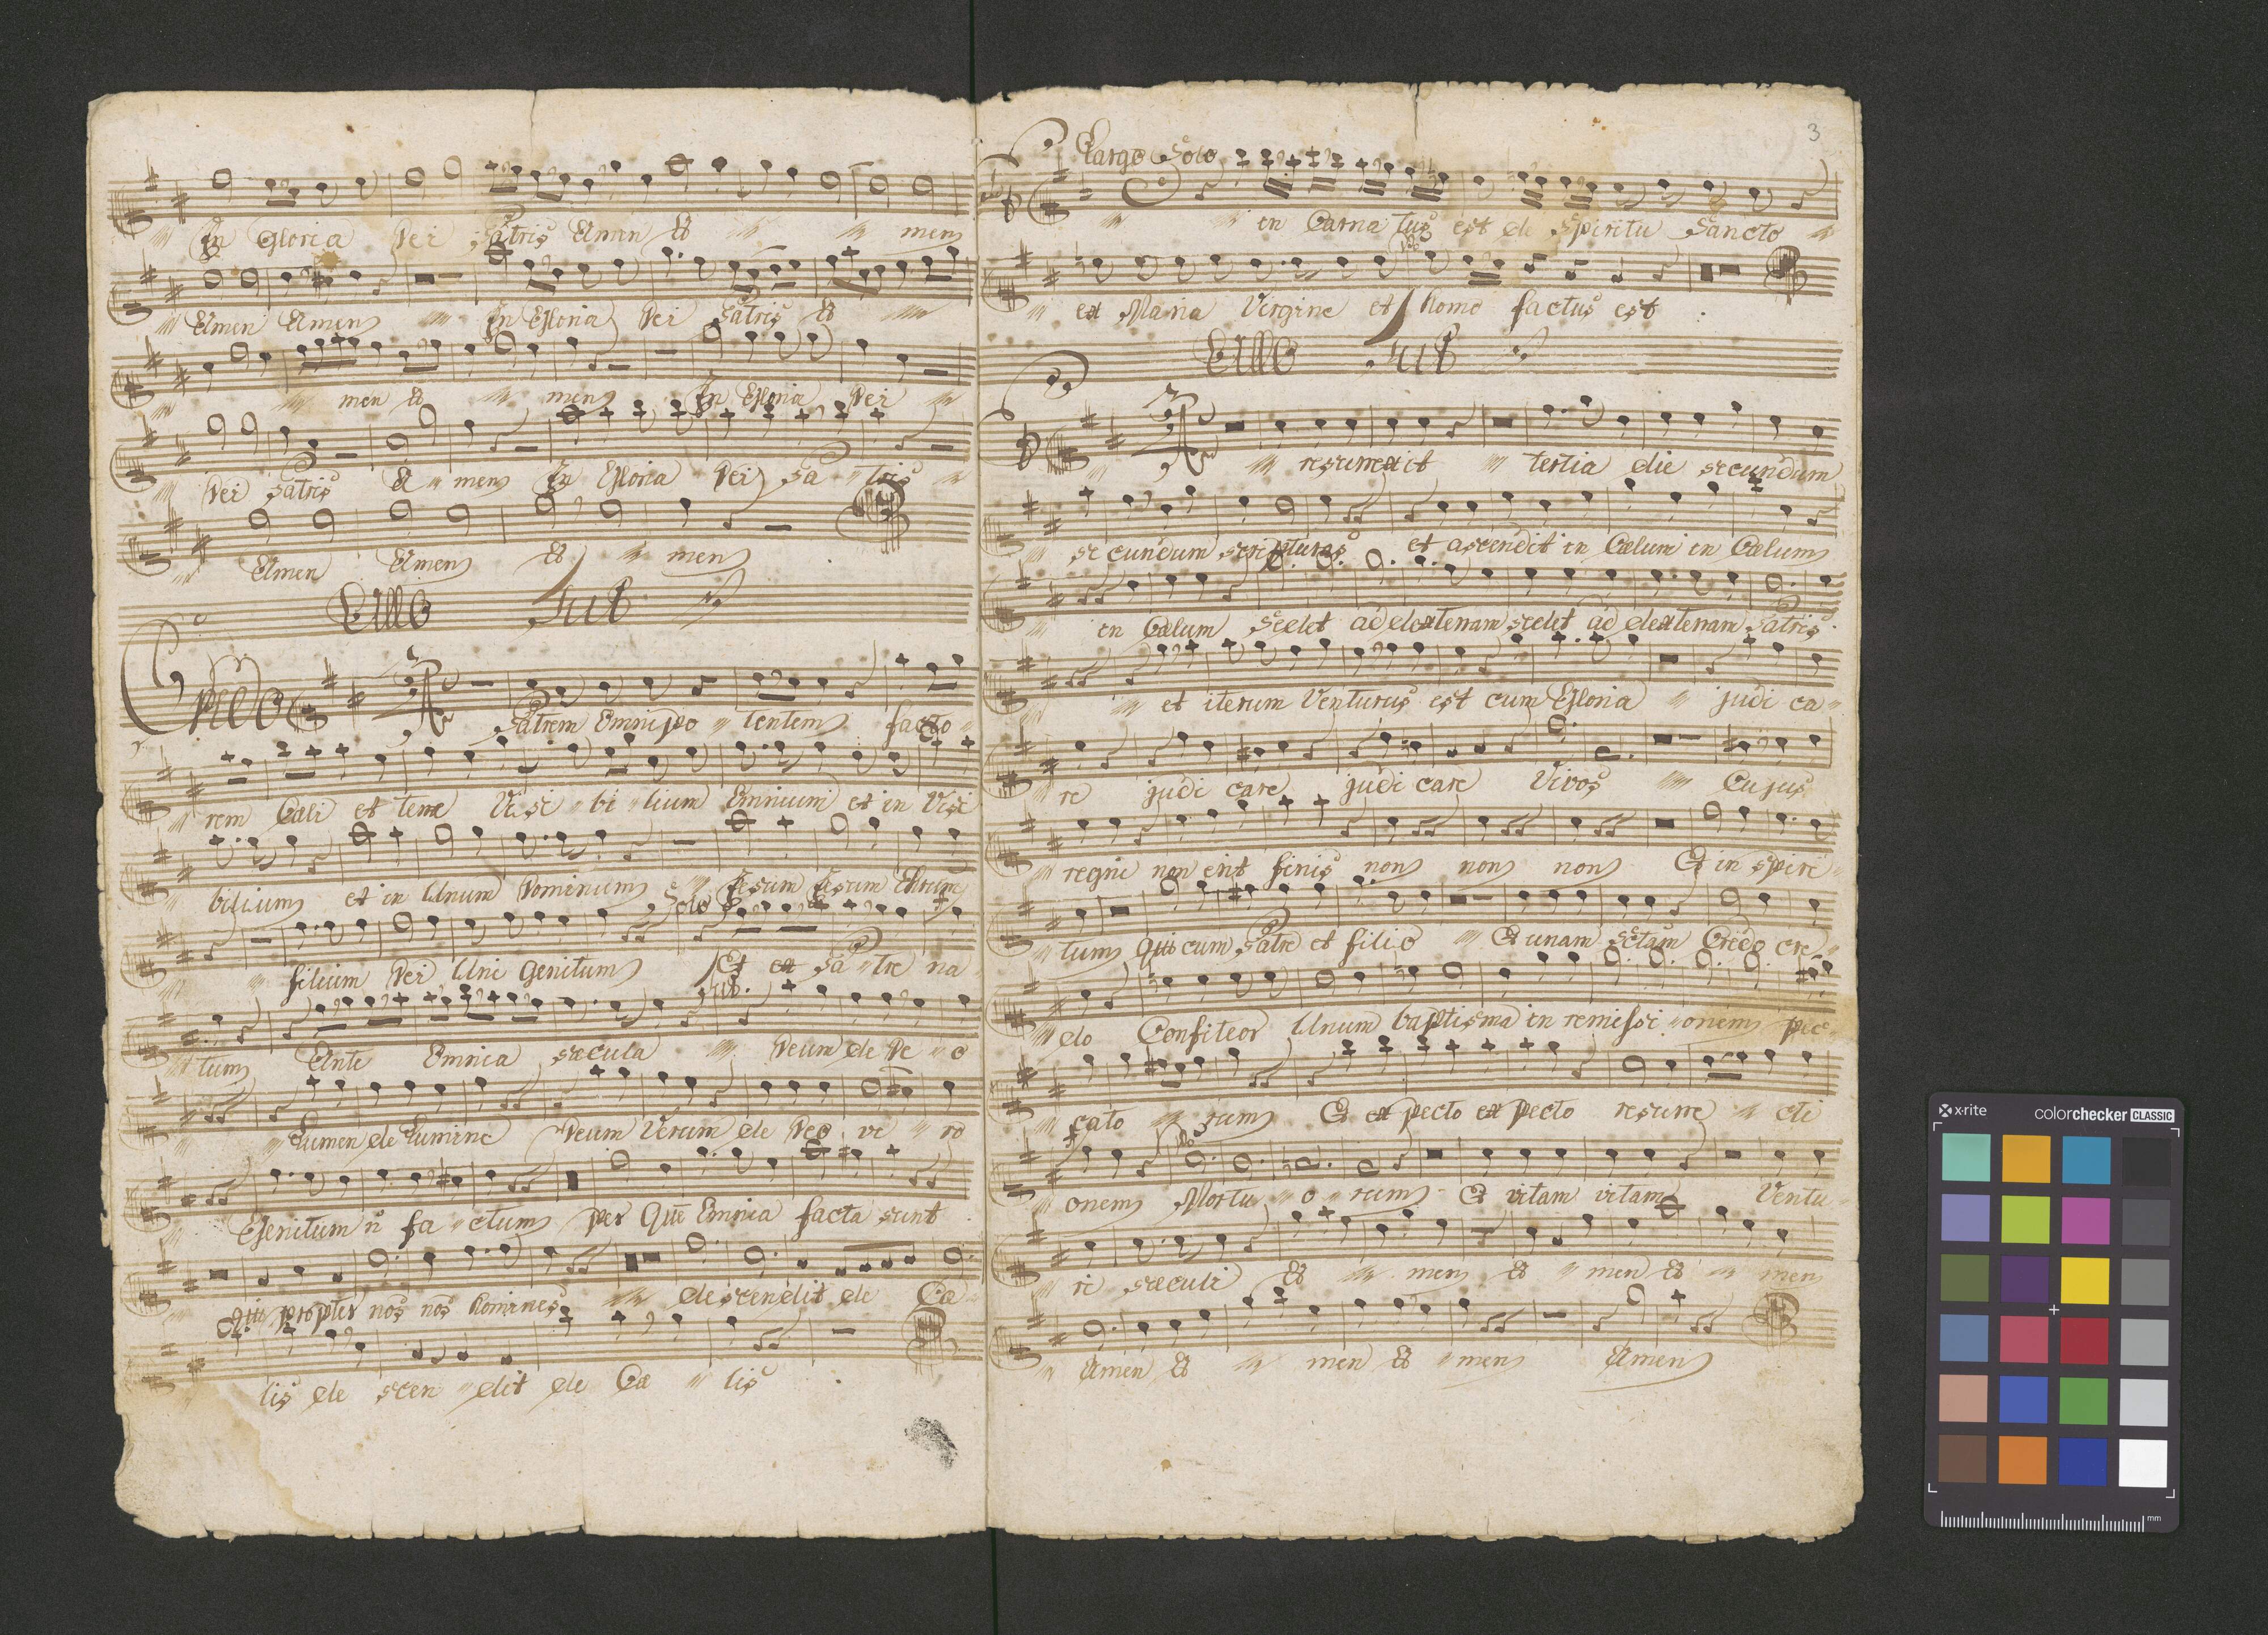 In Gloria Dei Patris Amen A men
Amen Amen In Gloria Dei Patris A
men A men In Gloria Dei
Dei Patris A men In Gloria Dei Pa tris
Amen Amen A men
Credo
Patrem Omnipo tentem facto
rem Cæli et terræ Visi bi lium Omnium et in Visi
bilium et in Unum Dominum Jesum Jesum
Solo
filium Dei Uni Genitum Et ex Pa tre na
tum Ante Omnia sæcula Deum de De o
Lumen de Lumine Deum Verum de Deo ve ro
Genitum n̄ fa ctum per Quē Omnia facta sunt
Qui propter nos nos homines descendit de Cæ
lis de scen dit de Cæ lis
3
Largo Solo
in Carna tus est de Spiritu Sancto
ex Maria Virgine et homo factus est
resurrexit tertia die secundum
secundum scripturas et ascendit in Cælum in Cælum
in Cælum sedet ad dexteram sedet ad dexteram Patris
et iterum Venturus est cum Gloria judi ca
re judi care judi care Vivos Cujus
regni non erit finis non non non Et in spiri
tum Qui cum Patre et filio Et unam Sctam Credo cre
do Confiteor Unum baptisma in remissi onem pec
cato rum Et expecto expecto resurre cti
onem Mortu o rum Et vitam vitam Ventu
ri sæculi A men A men A men
Amen A men A men Amen
x-rite colorchecker CLASSIC
mm